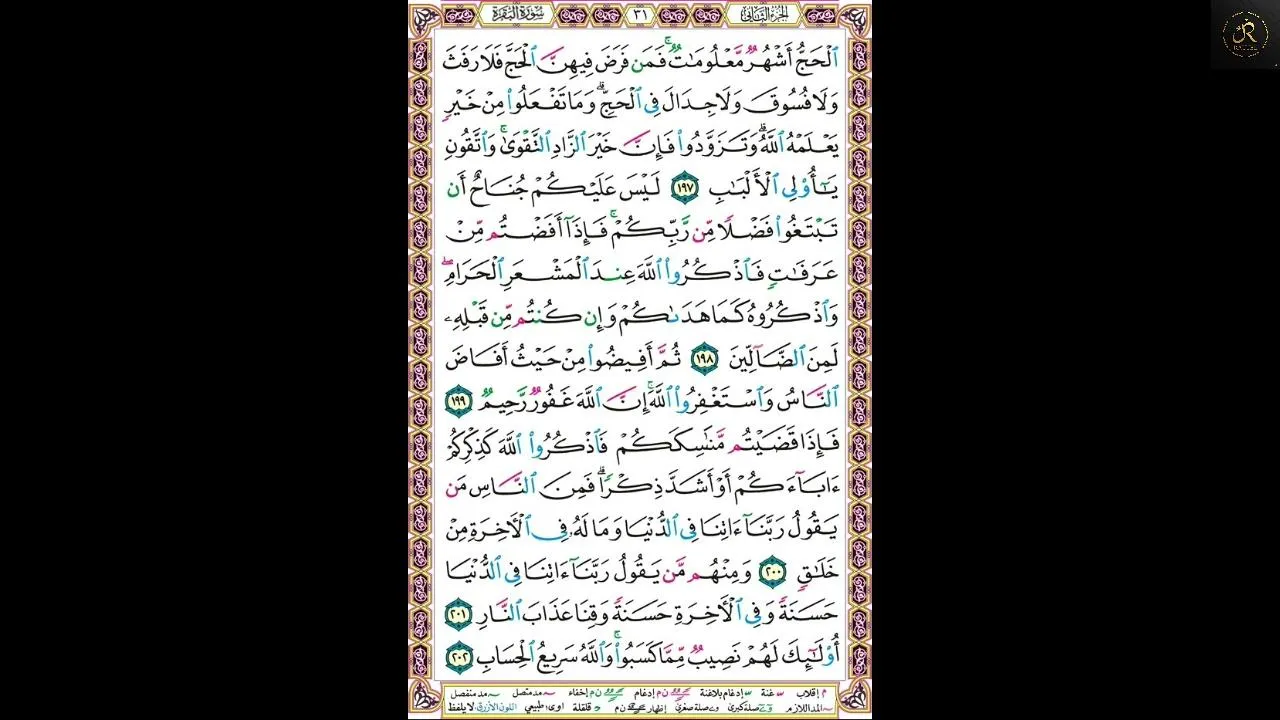 الجزء الثاني ٣١ سورة البقرة
ٱلْحَجُّ أَشْهُرٌ مَّعْلُومَٰتٌ ۚ فَمَن فَرَضَ فِيهِنَّ ٱلْحَجَّ فَلَا رَفَثَ
وَلَا فُسُوقَ وَلَا جِدَالَ فِى ٱلْحَجِّ ۗ وَمَا تَفْعَلُوا۟ مِنْ خَيْرٍ
يَعْلَمْهُ ٱللَّهُ ۗ وَتَزَوَّدُوا۟ فَإِنَّ خَيْرَ ٱلزَّادِ ٱلتَّقْوَىٰ ۚ وَٱتَّقُونِ
يَٰٓأُو۟لِى ٱلْأَلْبَٰبِ ١٩٧ لَيْسَ عَلَيْكُمْ جُنَاحٌ أَن
تَبْتَغُوا۟ فَضْلًا مِّن رَّبِّكُمْ ۚ فَإِذَآ أَفَضْتُم مِّنْ
عَرَفَٰتٍ فَٱذْكُرُوا۟ ٱللَّهَ عِندَ ٱلْمَشْعَرِ ٱلْحَرَامِ ۖ
وَٱذْكُرُوهُ كَمَا هَدَىٰكُمْ وَإِن كُنتُم مِّن قَبْلِهِۦ
لَمِنَ ٱلضَّآلِّينَ ١٩٨ ثُمَّ أَفِيضُوا۟ مِنْ حَيْثُ أَفَاضَ
ٱلنَّاسُ وَٱسْتَغْفِرُوا۟ ٱللَّهَ ۚ إِنَّ ٱللَّهَ غَفُورٌ رَّحِيمٌ ١٩٩
فَإِذَا قَضَيْتُم مَّنَٰسِكَكُمْ فَٱذْكُرُوا۟ ٱللَّهَ كَذِكْرِكُمْ
ءَابَآءَكُمْ أَوْ أَشَدَّ ذِكْرًا ۗ فَمِنَ ٱلنَّاسِ مَن
يَقُولُ رَبَّنَآ ءَاتِنَا فِى ٱلدُّنْيَا وَمَا لَهُۥ فِى ٱلْأَخِرَةِ مِنْ
خَلَٰقٍ ٢٠٠ وَمِنْهُم مَّن يَقُولُ رَبَّنَآ ءَاتِنَا فِى ٱلدُّنْيَا
حَسَنَةً وَفِى ٱلْأَخِرَةِ حَسَنَةً وَقِنَا عَذَابَ ٱلنَّارِ ٢٠١
أُو۟لَٰٓئِكَ لَهُمْ نَصِيبٌ مِّمَّا كَسَبُوا۟ ۚ وَٱللَّهُ سَرِيعُ ٱلْحِسَابِ ٢٠٢
م إقلاب غنة إدغام بلاغنة ن م إدغام ن م إخفاء مد متصل مد منفصل
المد اللازم صلة كبرى صلة صغرى إظهار ن م قلقلة اوى: طبيعي اللون الأزرق: لا يلفظ
R